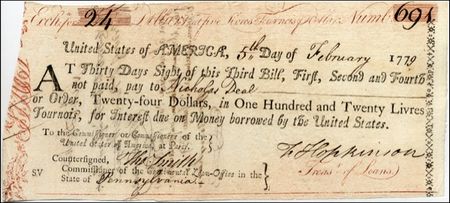 Exch. for 24 Dollars, at five Livres Tournois per Dollar, Numb. 691
United States of AMERICA, 5th Day of February 1779
AT Thirty Days Sight of this Third Bill, First, Second and Fourth
not paid, pay to Nicholas Deal
or Order, Twenty-four Dollars, in One Hundred and Twenty Livres
Tournois, for Interest due on Money borrowed by the United States.
To the Commissioner or Commissioners of the
United States of America, at Paris.
Countersigned, Tho. Smith
SV Commissioner of the Continental Loan-Office in the
State of Pennsylvania.
F Hopkinson
Treasr. of Loans